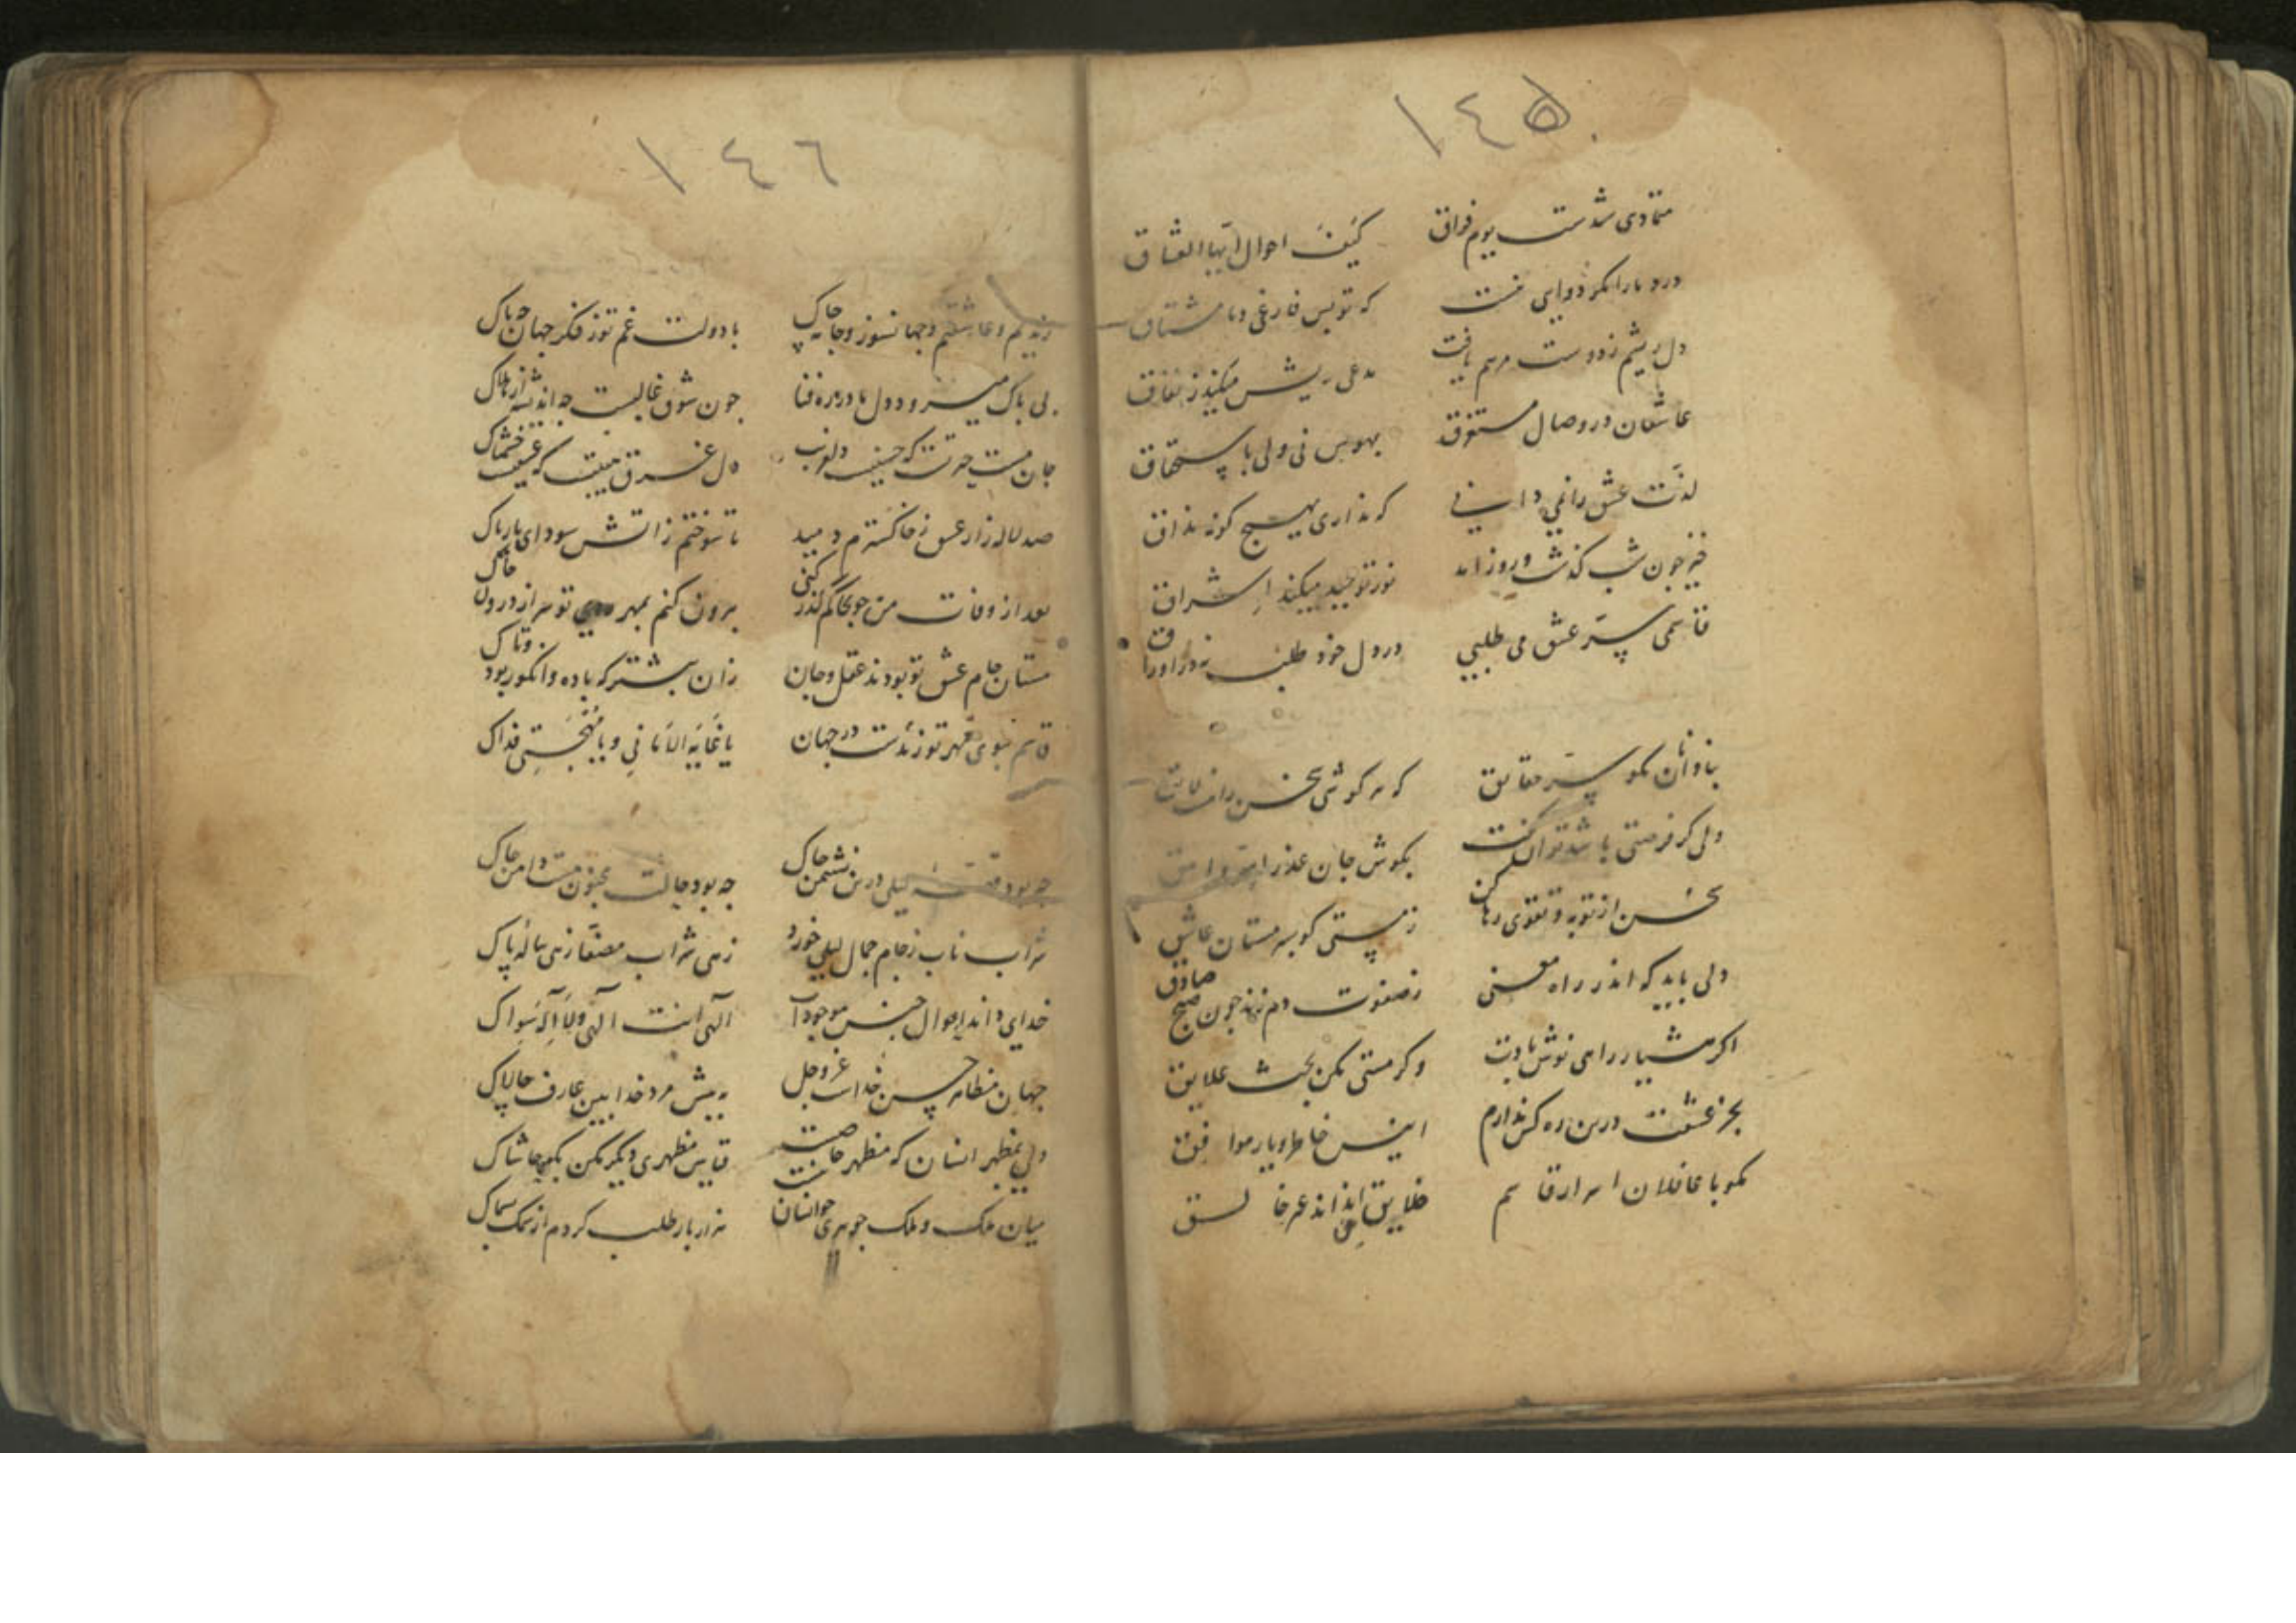 ١٤٥
متمادی شدست یوم فراق کیف احوال ایها العشاق
درد ما را مگر دوایی نیست که تو بس فارغی و ما مشتاق
دل ریشم ز دوست مرهم یافت مدعی ریش میکند ز نفاق
عاشقان در وصال مستغرق بهوس نی ولی باستحقاق
لذت عشق را نمی دانی که نداری بهیچ گونه مذاق
خیز چون شب گذشت و روز آمد نور توحید میکند اشراق
قاسمی سر عشق می طلبی در دل خود طلب نه در اوراق
بنادانان مگو سر حقایق که هر گوشی سخن را نیست لایق
ولی گر فرصتی باشد توان گفت بگوش جان عذرا سر وامق
سخن از توبه و تقوی رها کن ز مستی گو بسر مستان عاشق
دلی باید که اندر راه معنی ز صفوت دم زند چون صبح صادق
اگر هشیار راهی نوش بادت وگر مستی مکن بحث علایق
بجز عشقت درین ره کس ندارم انیس خاطر و یار موافق
مگو با غافلان اسرار قاسم خلایق اند اند عر خا لسق
١٤٦
رندیم و عاشقیم و جهانسوز و جامه چاک با دولت غم تو ز فکر جهان چه باک
بی باک میرود دل ما در ره فنا چون شوق غالبست چه اندیشه از هلاک
جان مست حیرتت که حسنیست دلفریب دل غرق هیبتت که عشقیست خشمناک
صد لاله زار عشق ز خاکسترم دمید تا سوختم ز آتش سودای یار پاک
بعد از وفات من چو بخاکم گذر کنی برون کنم بمهر تو سر از درون خاک
مستان جام عشق تو بودند عقل و جان زان پیشتر که باده و انگور بود و تاک
قاسم ببوی مهر تو زندست در جهان یا غایة الامانی و یا مهجتی فداک
چه بود قصه لیلی درین نشیمن خاک چه بود حالت مجنون مست دامن چاک
شراب ناب ز جام جمال لیلی خورد زهی شراب مصفا زهی پیاله پاک
خدای داند احوال جنس موجودات الهی انت الهی ولا اله سواک
جهان مظاهر حسن خداست عز و جل به پیش مرد خدا بین عارف چالاک
ولی بمظهر انسان که مظهر خاصست قیاس مظهری دیگر مکن بگو حاشاک
میان ملک و ملک جوهری چو انسان نیست هزار بار طلب کردم از سمک بسماک